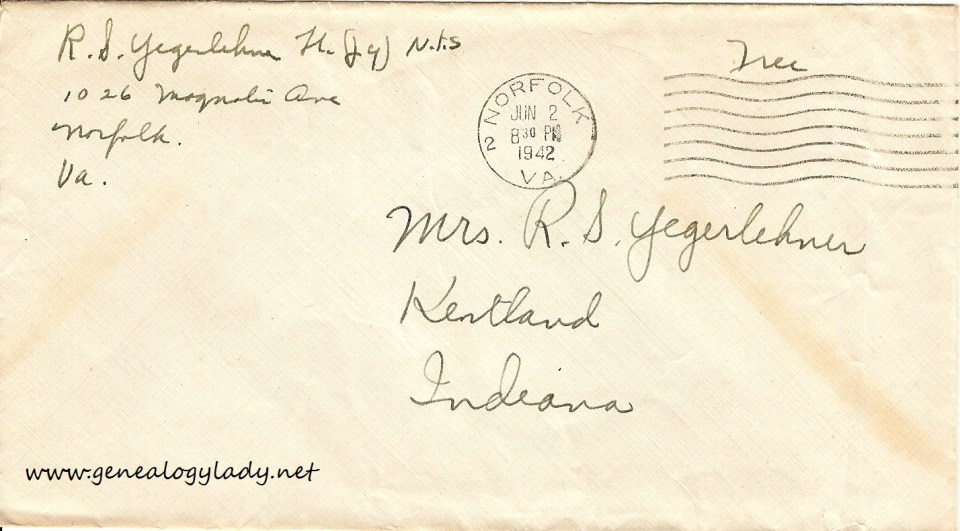 R. S. Yegerlehner Lt. (jg) N.T.S
1026 Magnolia Ave
Norfolk.
Va.
Free
NORFOLK
2
JUN 2
8 30 PM
1942
VA.
Mrs. R. S. Yegerlehner
Kentland
Indiana
www.genealogylady.net